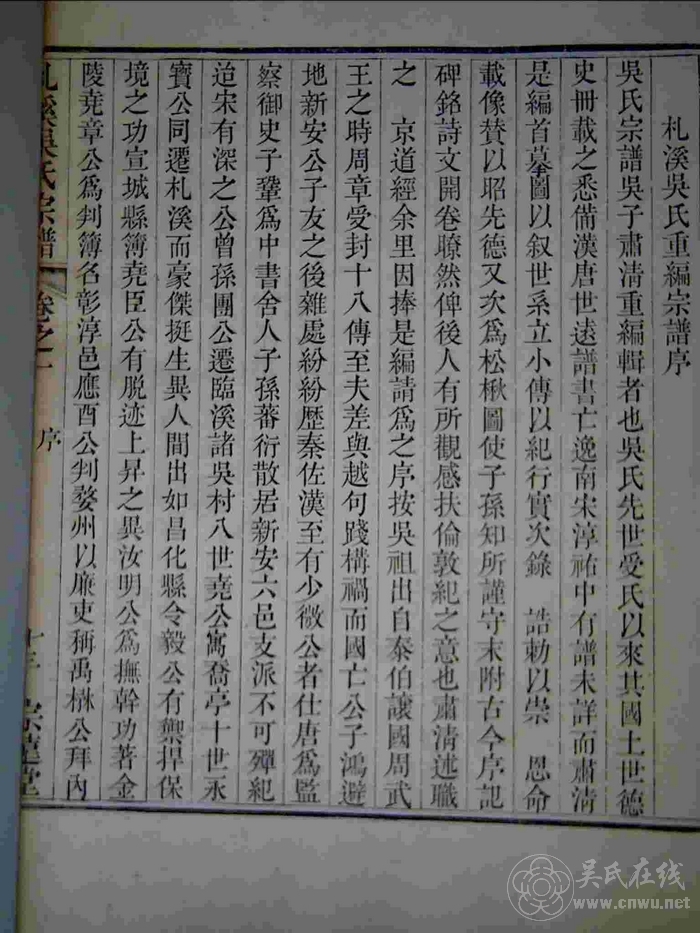 札溪吳氏重編宗譜序
吳氏宗譜吳子肅清重編輯者也吳氏先世受氏以來其國土世德
史冊載之悉備漢唐世遠譜書亡逸南宋淳祐中有譜未詳而肅清
是編首墓圖以叙世系立小傳以紀行實次錄 誥勅以崇 恩命
載像赞以昭先德又次爲松楸圖使子孫知所謹守末附古今序記
碑銘詩文開卷瞭然俾後人有所觀感扶倫敦紀之意也肅清述職
之 京道經余里因捧是編請爲之序按吳祖出自泰伯讓國周武
王之時周章受封十八傳至夫差與越句踐構禍而國亡公子鴻避
地新安公子友之後雜處紛紛歷秦佐漢至有少微公者仕唐爲監
察御史子鞏爲中書舍人子孫蕃衍散居新安六邑支派不可殫紀
迨宋有深之公曾孫團公遷臨溪諸吳村八世堯公寓喬亭十世永
寶公同遷札溪而豪傑挺生異人間出如昌化縣令毅公有禦捍保
境之功宣城縣簿堯臣公有脱迹上昇之異汝明公爲撫幹功著金
陵堯章公爲判簿名彰淳邑應酉公判婺州以廉吏稱禹楙公拜內
札溪吳氏宗譜 卷之一 序 宗禮堂
吴氏在线
www.cnwu.net